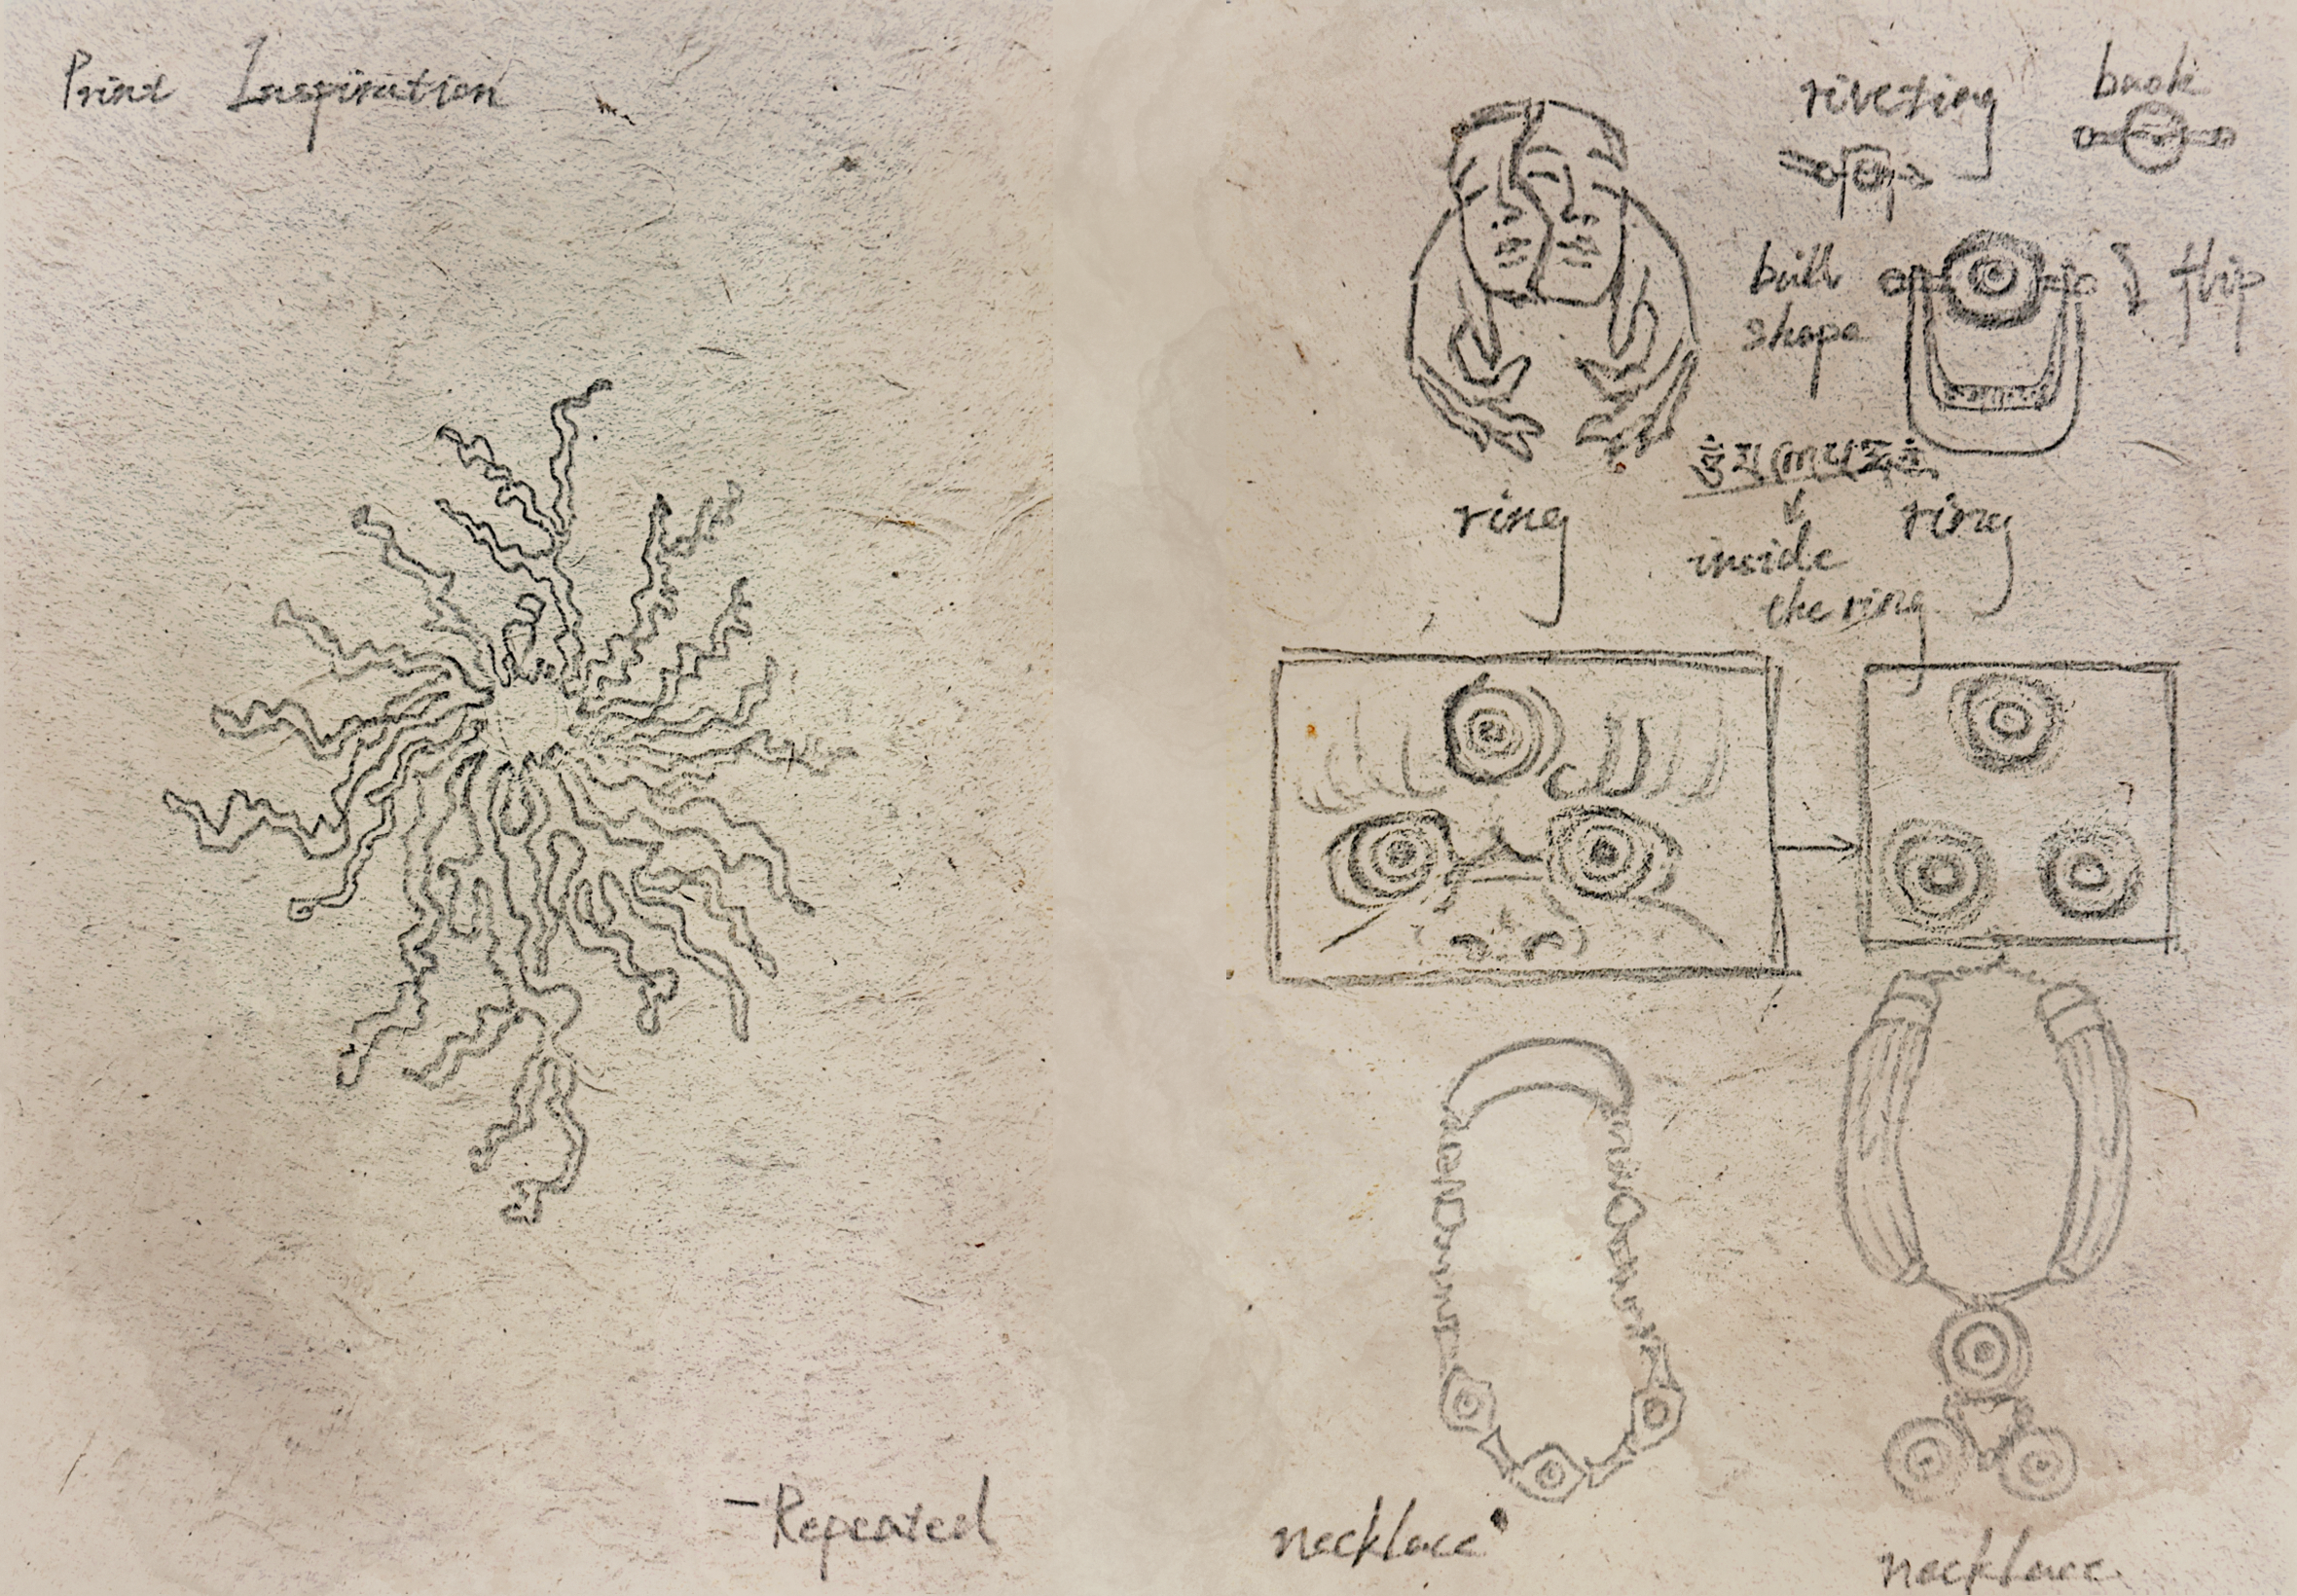 Print Inspiration
- Repeated
riveting
back
ball
shape
flip
ring
inside
the ring
ring
necklace
necklace